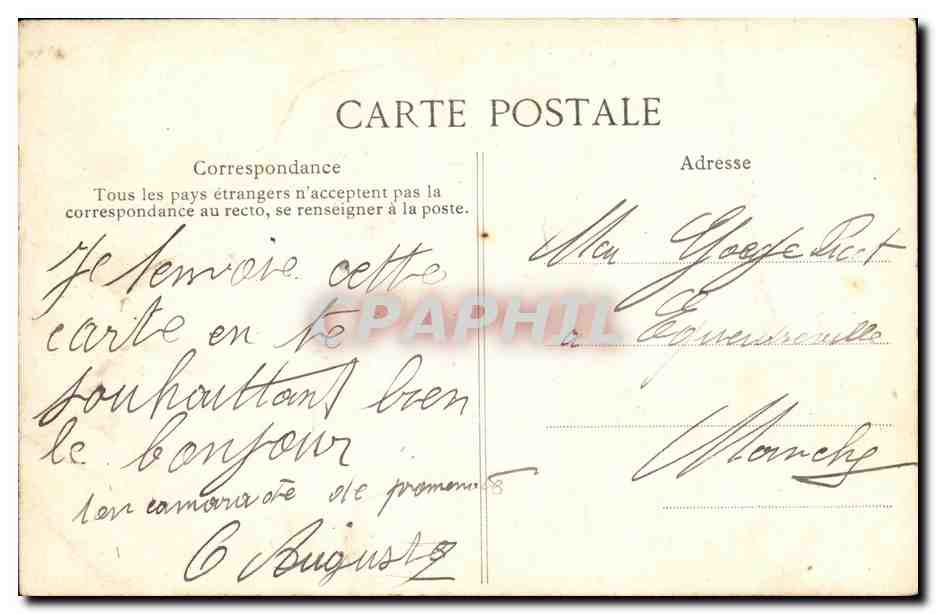 CARTE POSTALE
Correspondance
Tous les pays étrangers n'acceptent pas la
correspondance au recto, se renseigner à la poste.
Je t'envoie cette
carte en te
souhaittant bien
le bonjour
ton camarade de promenade
Auguste
Adresse
Picot
a Equeurdreville
Manche
CPAPHIL